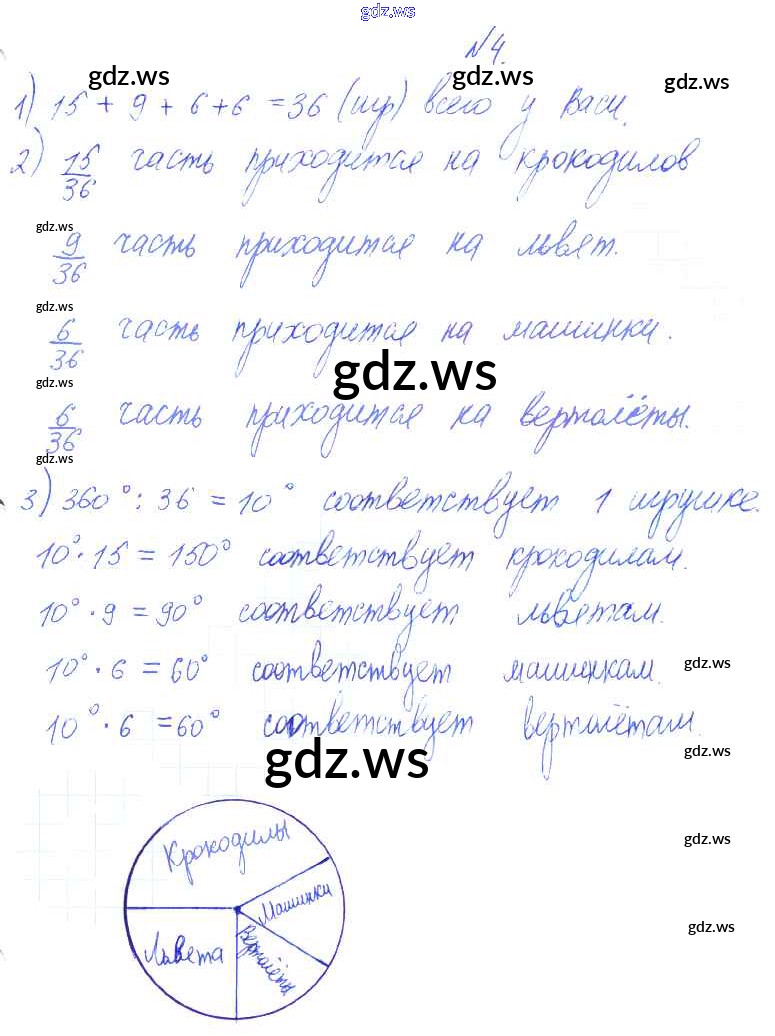 gdz.ws
№4.
gdz.ws gdz.ws gdz.ws
1) 15 + 9 + 6 + 6 = 36 (игр) всего у Васи.
2) 15/36 часть приходится на крокодилов
gdz.ws
9/36 часть приходится на львят.
gdz.ws
6/36 часть приходится на машинки.
gdz.ws
gdz.ws
6/36 часть приходится на вертолёты.
gdz.ws
3) 360° : 36 = 10° соответствует 1 игрушке.
10° · 15 = 150° соответствует крокодилам.
10° · 9 = 90° соответствует львятам.
10° · 6 = 60° соответствует машинкам.
gdz.ws
10° · 6 = 60° соответствует вертолётам.
gdz.ws
gdz.ws
Крокодилы
gdz.ws
Машинки
Львята
Вертолёты
gdz.ws